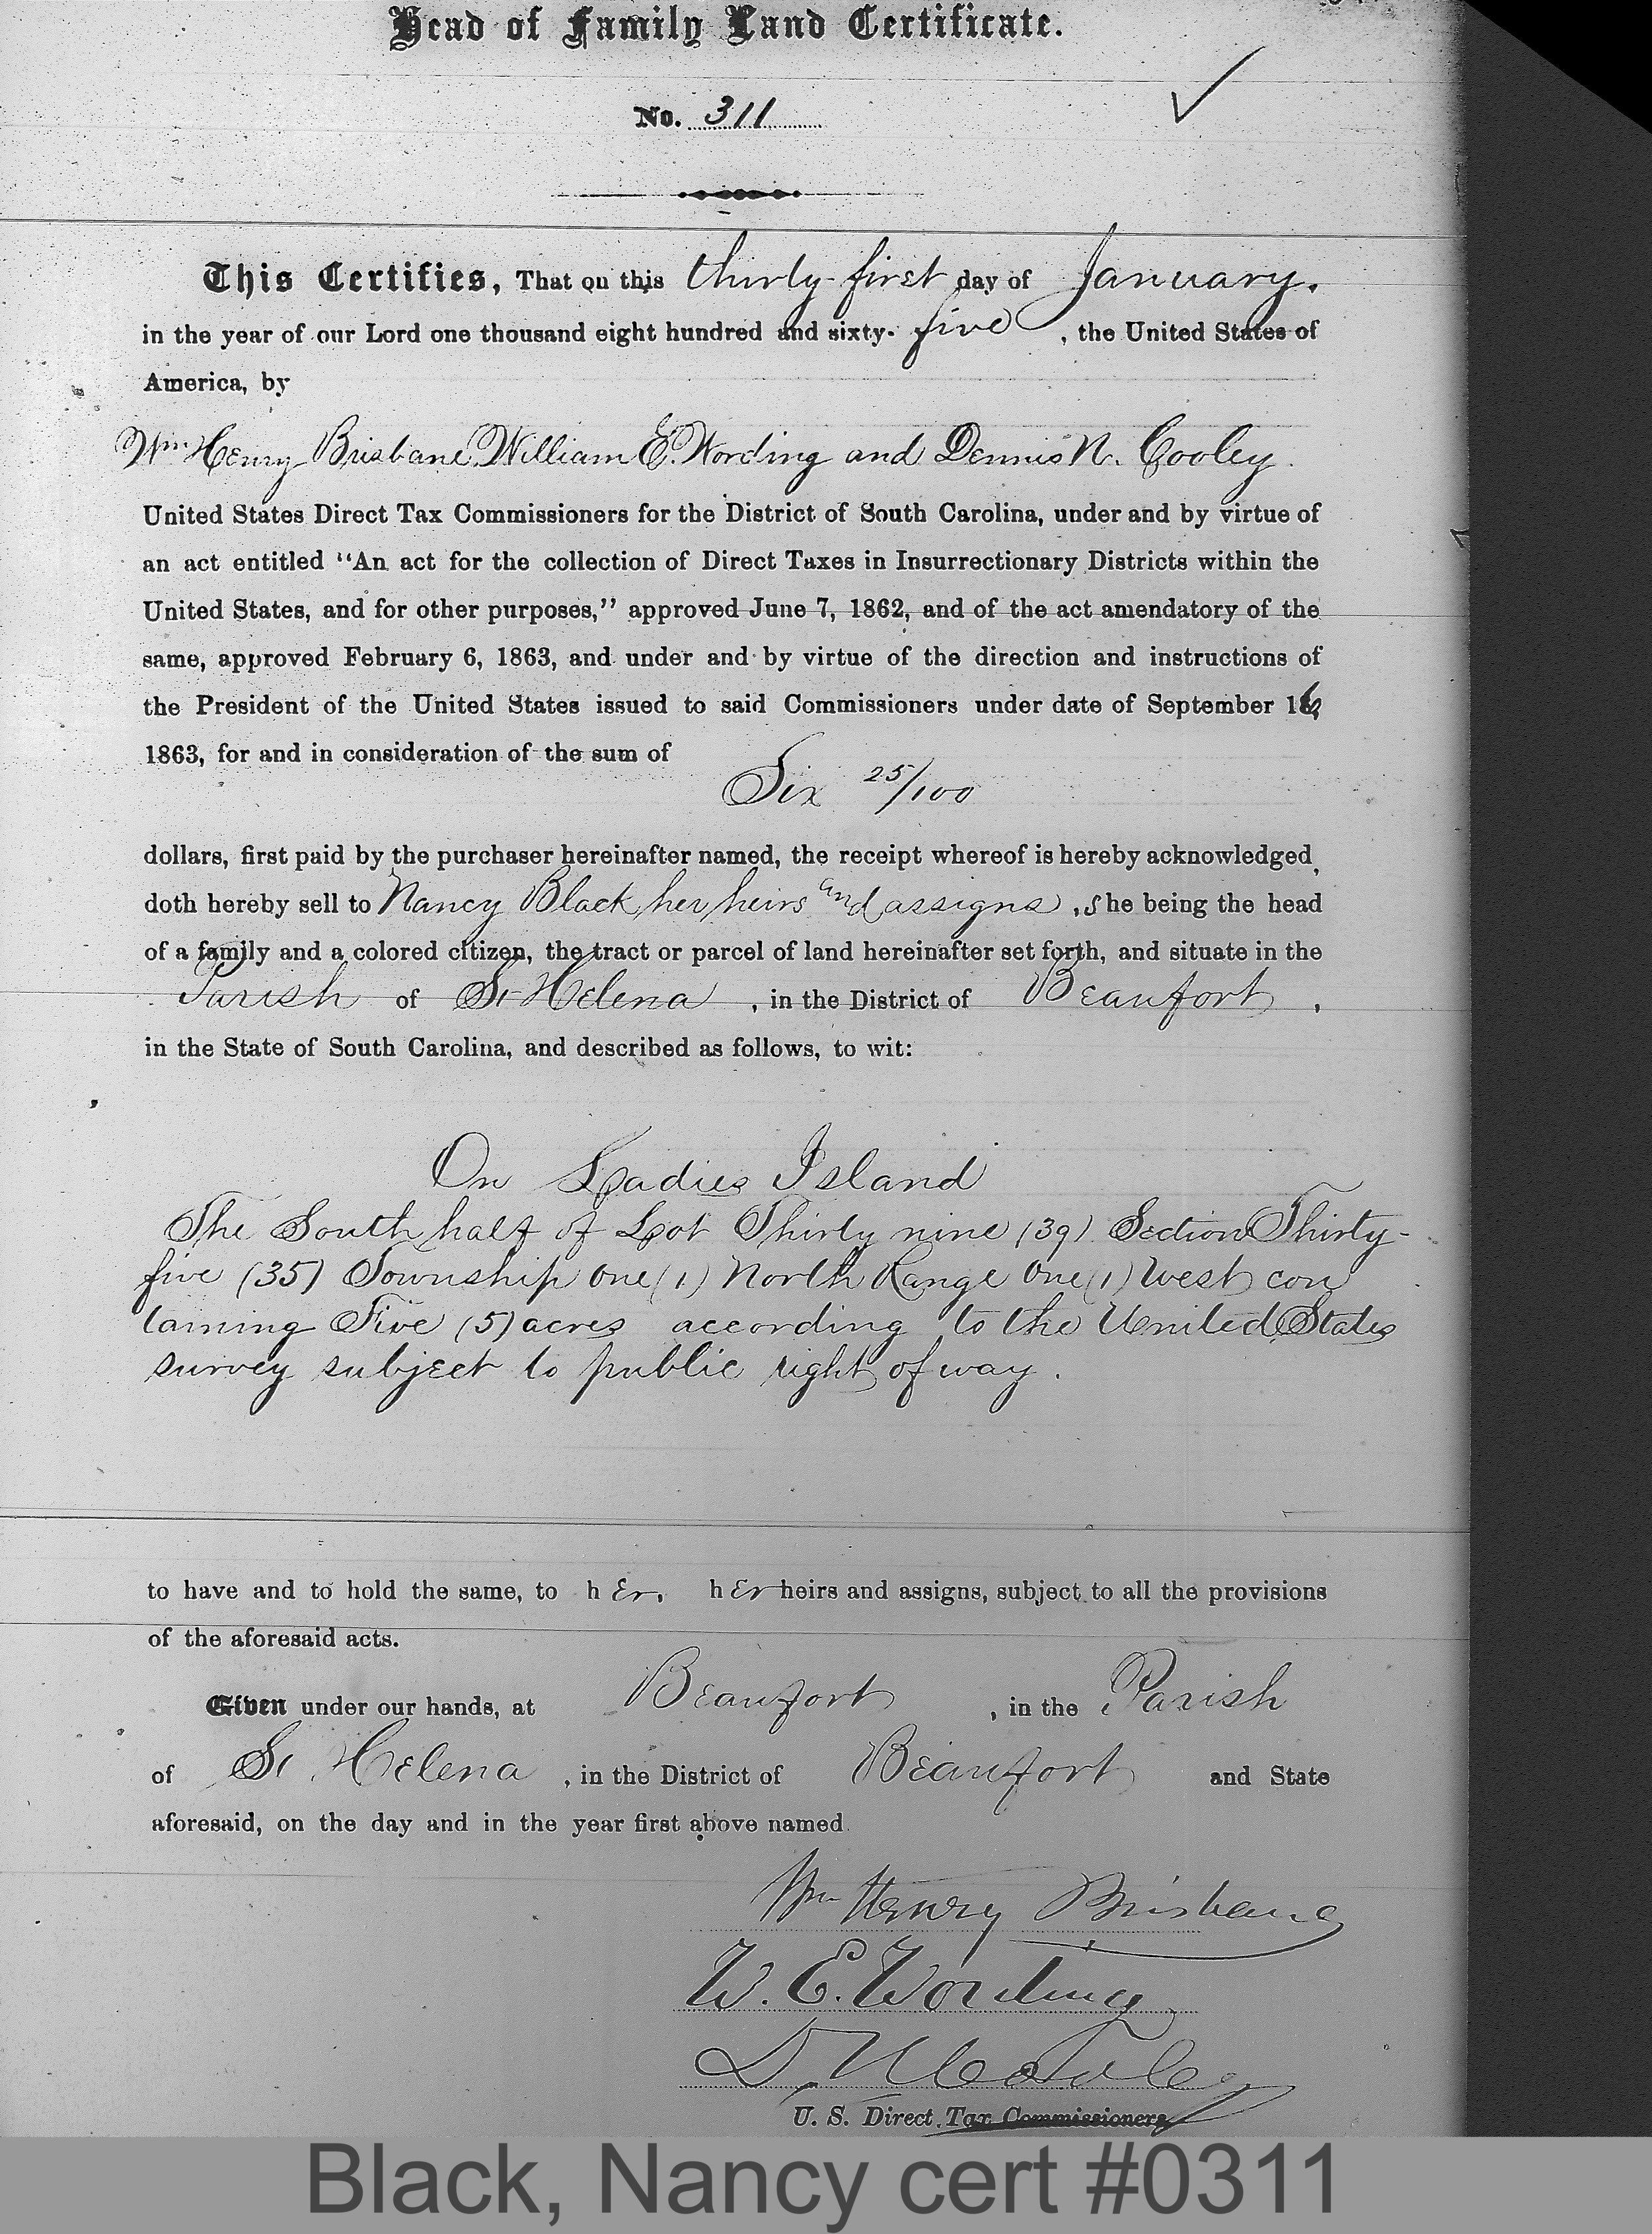 Head of Family Land Certificate.
No. 311
This Certifies, That on this thirty-first day of January.
in the year of our Lord one thousand eight hundred and sixty-five, the United States of
America, by
Wm Henry Brisbane, William E. Wording and Dennis N. Cooley
United States Direct Tax Commissioners for the District of South Carolina, under and by virtue of
an act entitled "An act for the collection of Direct Taxes in Insurrectionary Districts within the
United States, and for other purposes," approved June 7, 1862, and of the act amendatory of the
same, approved February 6, 1863, and under and by virtue of the direction and instructions of
the President of the United States issued to said Commissioners under date of September 16,
1863, for and in consideration of the sum of
Six 25/100
dollars, first paid by the purchaser hereinafter named, the receipt whereof is hereby acknowledged,
doth hereby sell to Nancy Black her heirs and assigns, She being the head
of a family and a colored citizen, the tract or parcel of land hereinafter set forth, and situate in the
Parish of St Helena, in the District of Beaufort,
in the State of South Carolina, and described as follows, to wit:
On Ladies Island
The South half of Lot Thirty nine (39) Section Thirty-
five (35) Township One (1) North Range One (1) West con
taining Five (5) acres according to the United States
survey subject to public right of way.
to have and to hold the same, to her, her heirs and assigns, subject to all the provisions
of the aforesaid acts.
Given under our hands, at Beaufort, in the Parish
of St Helena, in the District of Beaufort and State
aforesaid, on the day and in the year first above named.
Wm Henry Brisbane
W. E. Wording
D. N. Cooley
U. S. Direct Tax Commissioners
Black, Nancy cert #0311